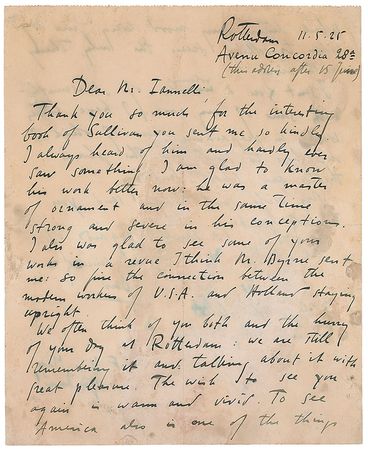 Rotterdam 11.5.25
Avenue Concordia 28a
(this address after 15 June)
Dear Mr. Iannelli
Thank you so much for the interesting
book of Sullivan you sent me so kindly.
I always heard of him and hardly ever
saw something. I am glad to know
his work better now: he was a master
of ornament and in the same time
strong and severe in his conceptions.
I also was glad to see some of your
works in a revue I think Mr. Byrne sent
me: so fine the connection between the
modern workers of U.S.A. and Holland staying
upright
We often think of you both and the hurry
of your day at Rotterdam: we are still
remembering it and talking about it with
great pleasure. The wish to see you
again is warm and vivid. To see
America also is one of the things